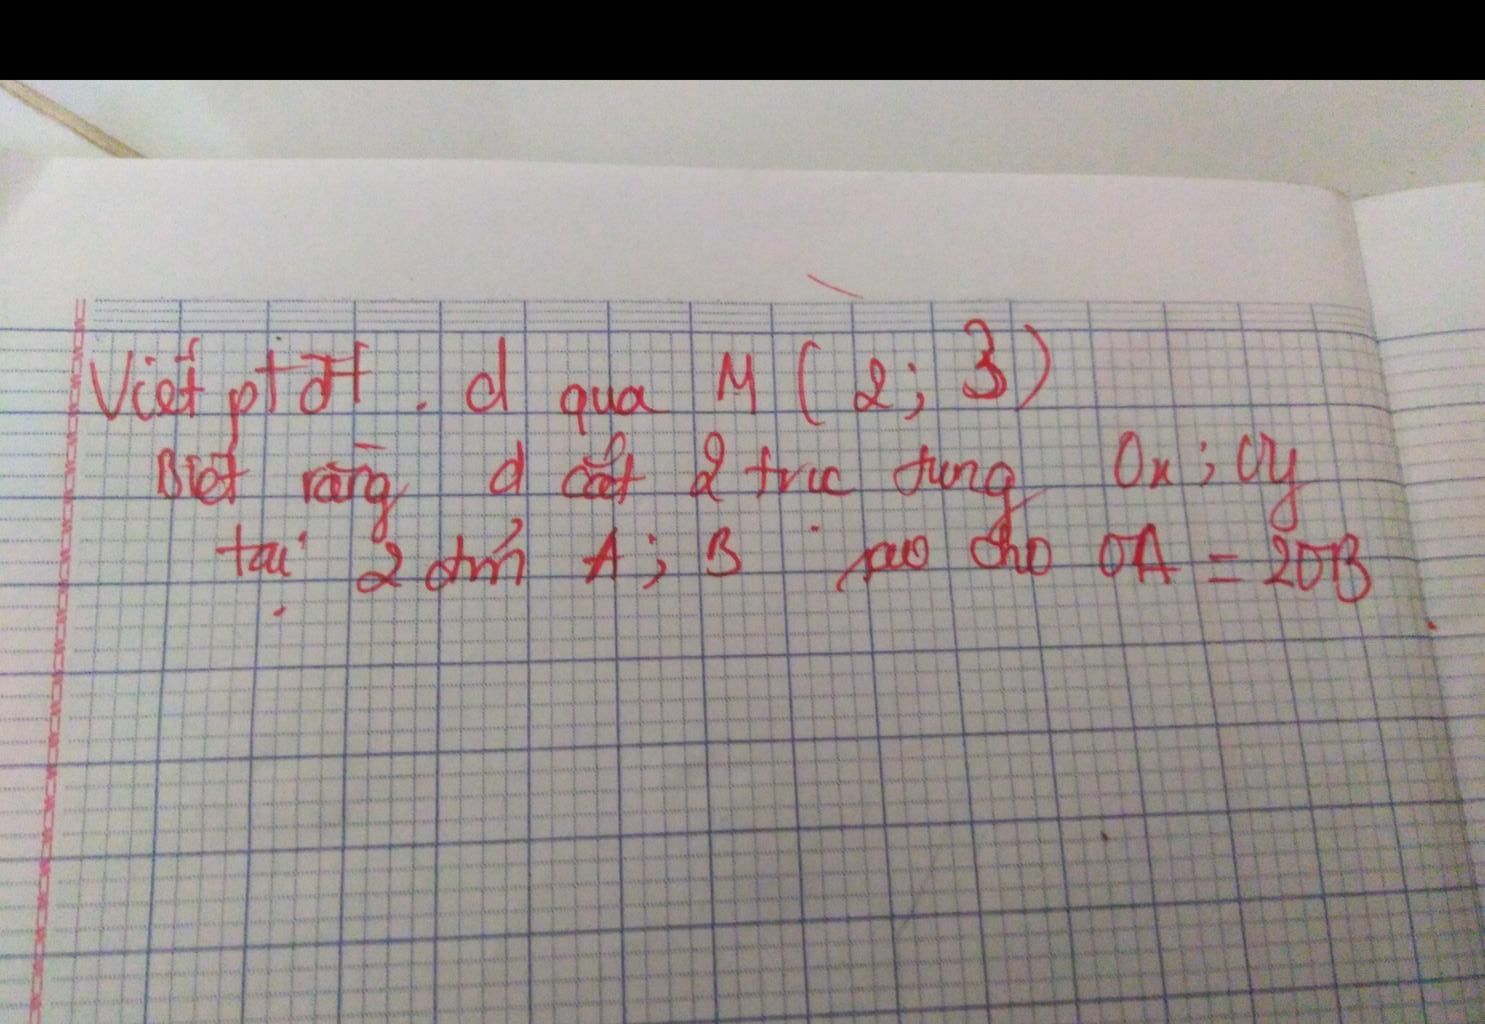 Viết pt đt . d qua M ( 2; 3)
Biết rằng d cắt 2 trục tung Ox ; Oy
tại 2 điểm A ; B sao cho OA = 2OB